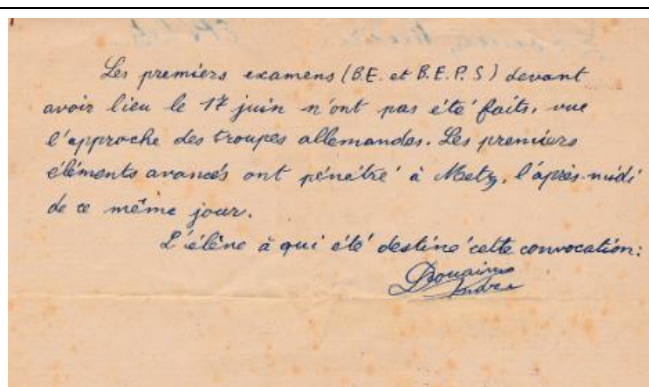 Les premiers examens (B.E. et B.E.P.S) devant
avoir lieu le 17 juin n'ont pas été faits, vue
l'approche des troupes allemandes. Les premiers
éléments avancés ont pénétré à Metz, l'après-midi
de ce même jour.
L'élève à qui été destiné cette convocation:
André